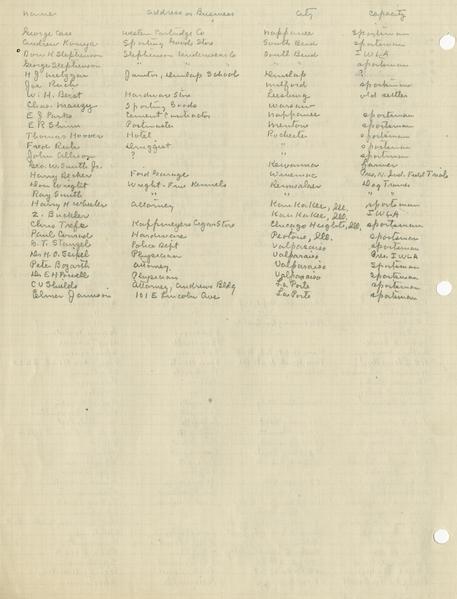 Name Address or Business City Capacity
George Case Western Cartridge Co Nappanee Sportsman
Andrew Sporting Goods Store South Bend sportsman
Don H Stephenson Stephenson Underwear Co South Bend I W L A
George Stephenson " " " sportsman
H J Metzger Janitor, Dunlap Schools Dunlap ?
Joe Rich Milford sportsman
W. H. Best Hardware Store Leesburg old settler
Chas. Sporting Goods Warsaw
E J Parks Cement Contractor Nappanee sportsman
E R Postmaster Mentone sportsman
Thomas Hoover Hotel Rochester sportsman
Fred Druggist " sportsman
John Allison ? " sportsman
Geo. W. Smith Jr. Kewanna farmer
Harry Ford Garage Winamac Pres. N. Ind. Field Trials
Don Wright Wright-Fine Kennels Remselaer Dog Trainer
Ray Smith " " " "
Harry H Wheeler Attorney Kankakee, Ill. sportsman
Z. Buchler Kankakee, Ill. I W L A
Chris Cigar Store Chicago Heights, Ill. sportsman
Paul Hardware Peotone, Ill. sportsman
Police Dept Valparaiso sportsman
Dr. H.O. Physician Valparaiso Pres. I W L A
Pete Bozarth Attorney Valparaiso sportsman
Dr E H Powell Physician Valparaiso sportsman
C V Shields Attorney, Andrews Bldg La Porte sportsman
Elmer Jamison 101 E Lincoln Ave La Porte sportsman